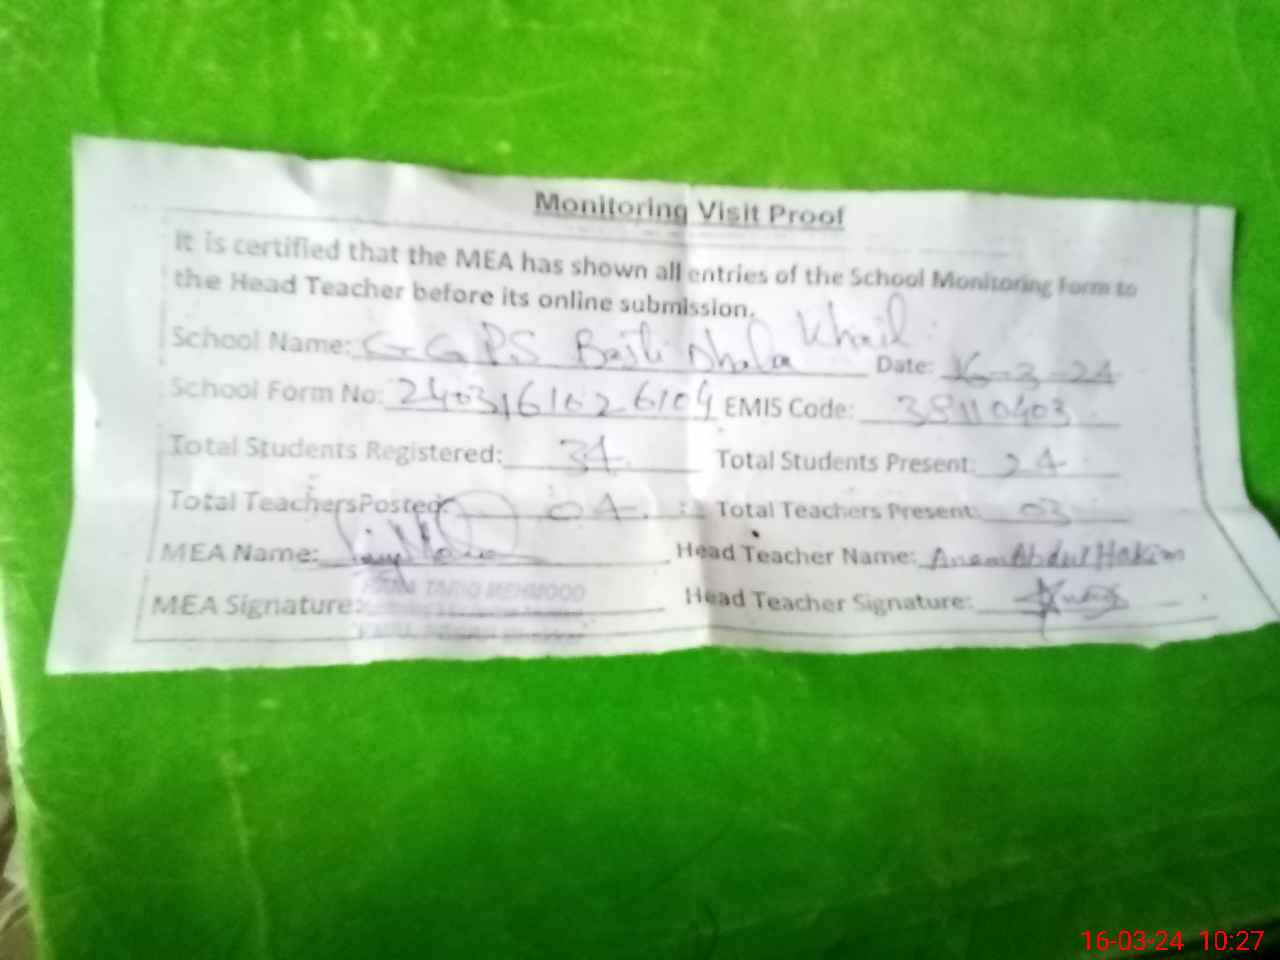 Monitoring Visit Proof
It is certified that the MEA has shown all entries of the School Monitoring Form to
the Head Teacher before its online submission.
School Name: GGPS Basti Dhala Khail Date: 16-3-24
School Form No: 2403161026104 EMIS Code: 38110403
Total Students Registered: 34 Total Students Present: 24
Total TeachersPosted: 04 Total Teachers Present: 03
MEA Name: Head Teacher Name: Anam Abdul Hakim
TARIQ MEHMOOD
MEA Signature: Head Teacher Signature:
16-03-24 10:27